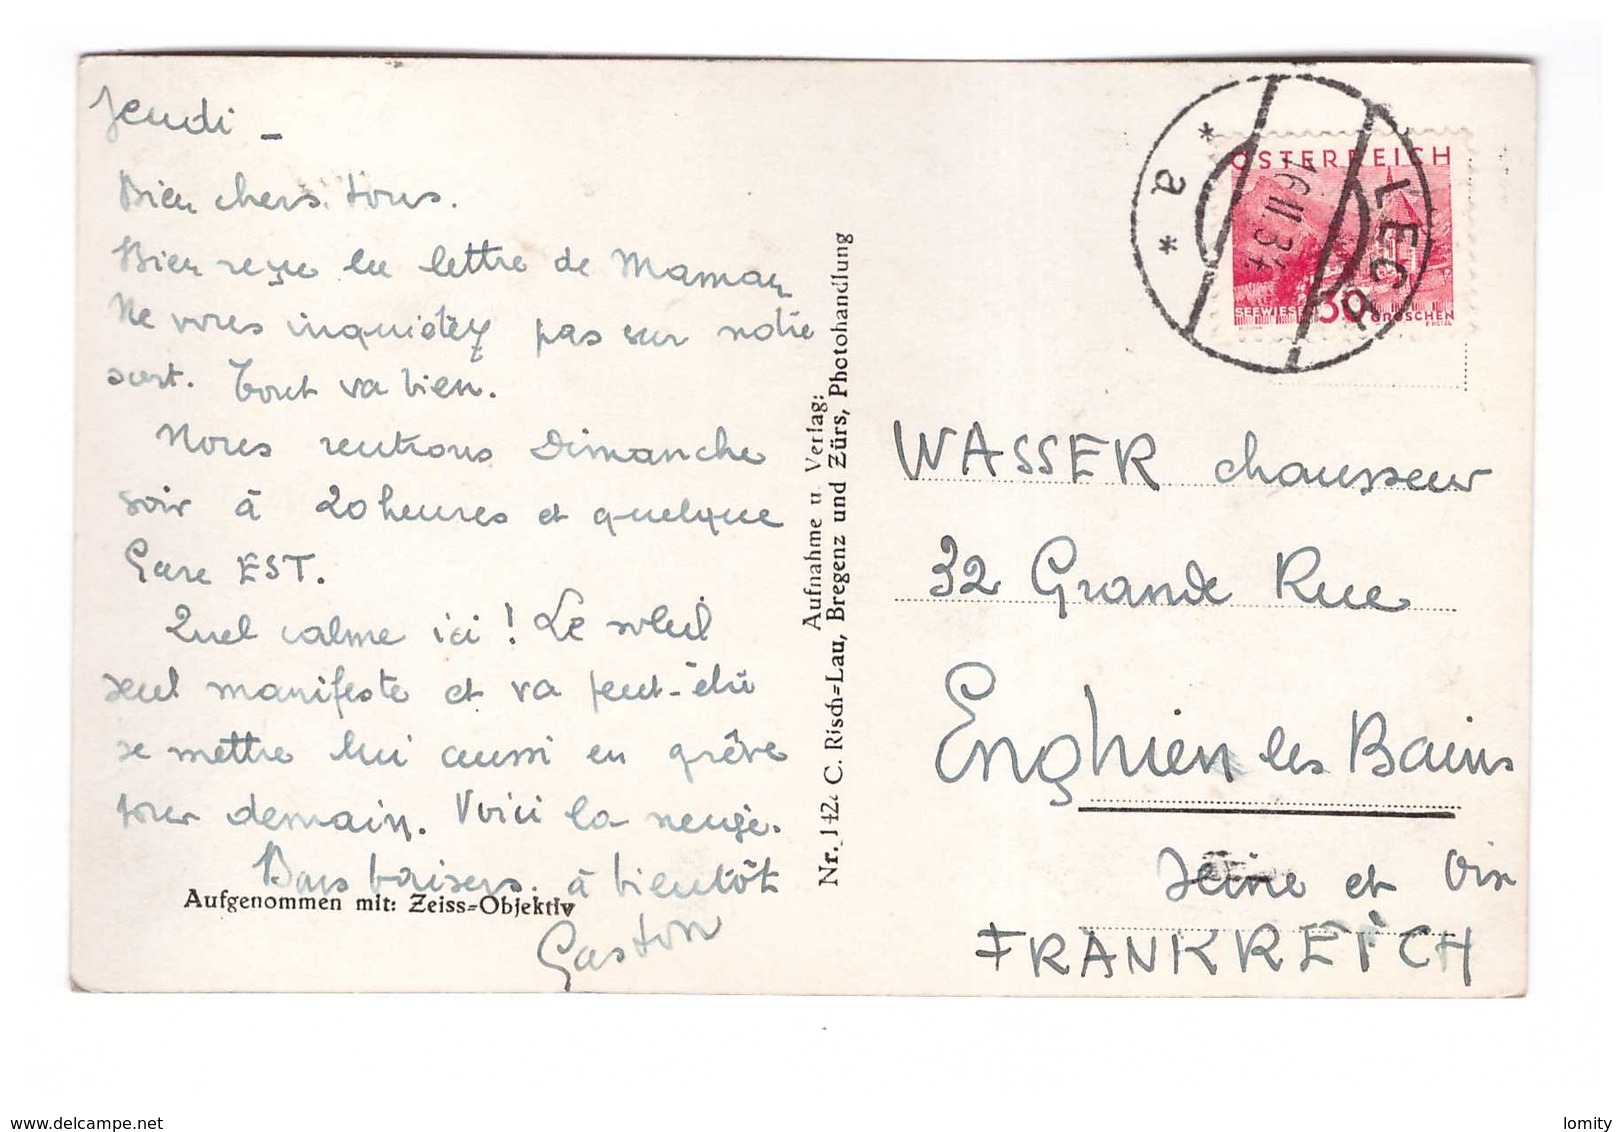 Jeudi -
Bien chers tous.
Bien reçu la lettre de Maman
Ne vous inquiétez pas sur notre
sort. Tout va bien.
Nous rentrons Dimanche
soir à 20 heures et quelque
Gare EST.
Quel calme ici ! Le soleil
seul manifeste et va peut-être
se mettre lui aussi en grève
pour demain. Voici la neige.
Bons baisers. à bientôt
Gaston
Aufgenommen mit: Zeiss=Objektiv
Aufnahme u. Verlag:
C. Risch=Lau, Bregenz und Zürs, Photohandlung
LECH
16.II.34
* a *
ÖSTERREICH
SEEWIESEN 30 GROSCHEN
WASSER chausseur
32 Grande Rue
Enghien les Bains
Seine et Oise
FRANKREICH
delcampe.net
lomity